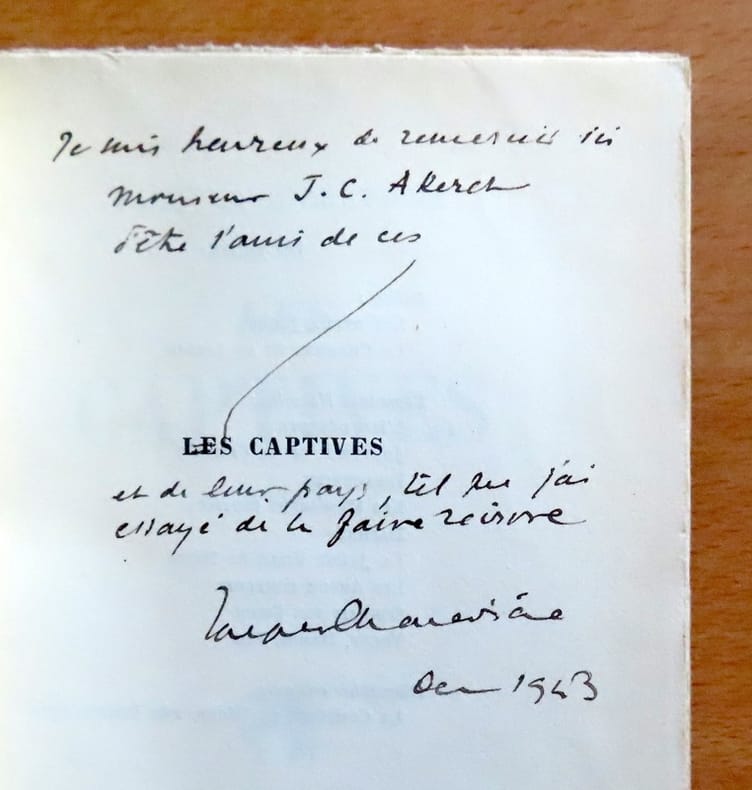 Je suis heureux de remercier ici
Monsieur J. C. Akerch
d'être l'ami de ces
LES CAPTIVES
et de leur pays, tel que j'ai
essayé de le faire revivre
Jacques Chenevière
1943